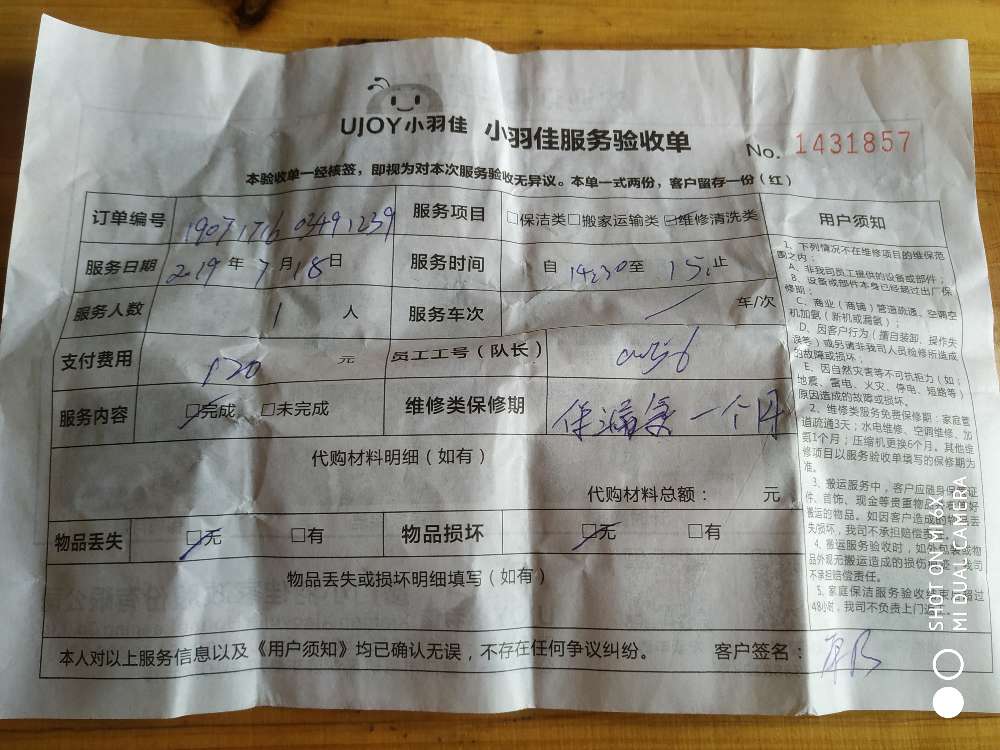 UJOY小羽佳 小羽佳服务验收单
No. 1431857
本验收单一经核签，即视为对本次服务验收无异议。本单一式两份，客户留存一份（红）
订单编号 服务项目 □保洁类□搬家运输类☑维修清洗类
服务日期 2019年7月18日 服务时间 自14:30至15:止
服务人数 1 人 服务车次 / 车/次
支付费用 120 元 员工工号（队长）
服务内容 ☑完成 □未完成 维修类保修期 保漏氟一个月
代购材料明细（如有）
代购材料总额： 元
物品丢失 ☑无 □有 物品损坏 ☑无 □有
物品丢失或损坏明细填写（如有）
本人对以上服务信息以及《用户须知》均已确认无误，不存在任何争议纠纷。 客户签名：
用户须知
1、下列情况不在维修项目的维保范
围之内：
A、非我司员工提供的设备或部件；
B、设备或部件本身已经超过出厂保
修期；
C、商业（商铺）管道疏通、空调空
机加氨（新机或漏氨）；
D、因客户行为（擅自装卸、操作失
误等）或另请非我司人员检修所造成
的故障或损坏；
E、因自然灾害等不可抗拒力（如：
地震、雷电、火灾、停电、短路等）
原因造成的故障或损坏。
2、维修类服务免费保修期：家庭管
道疏通3天；水电维修、空调维修、加
氨1个月；压缩机更换6个月。其他维
修项目以服务验收单填写的保修期为
准。
3、搬运服务中，客户应随身保
件、首饰、现金等贵重物品
搬运的物品。如因客户造成的物品丢
失/损坏，我司不承担赔偿责任。
4、搬运服务验收时，如外包装或物
品外观无搬运造成的损伤
不承担赔偿责任。
5、家庭保洁服务验收结束，超过
48小时，我司不负责上门返工。
SHOT ON MI 6X
MI DUAL CAMERA